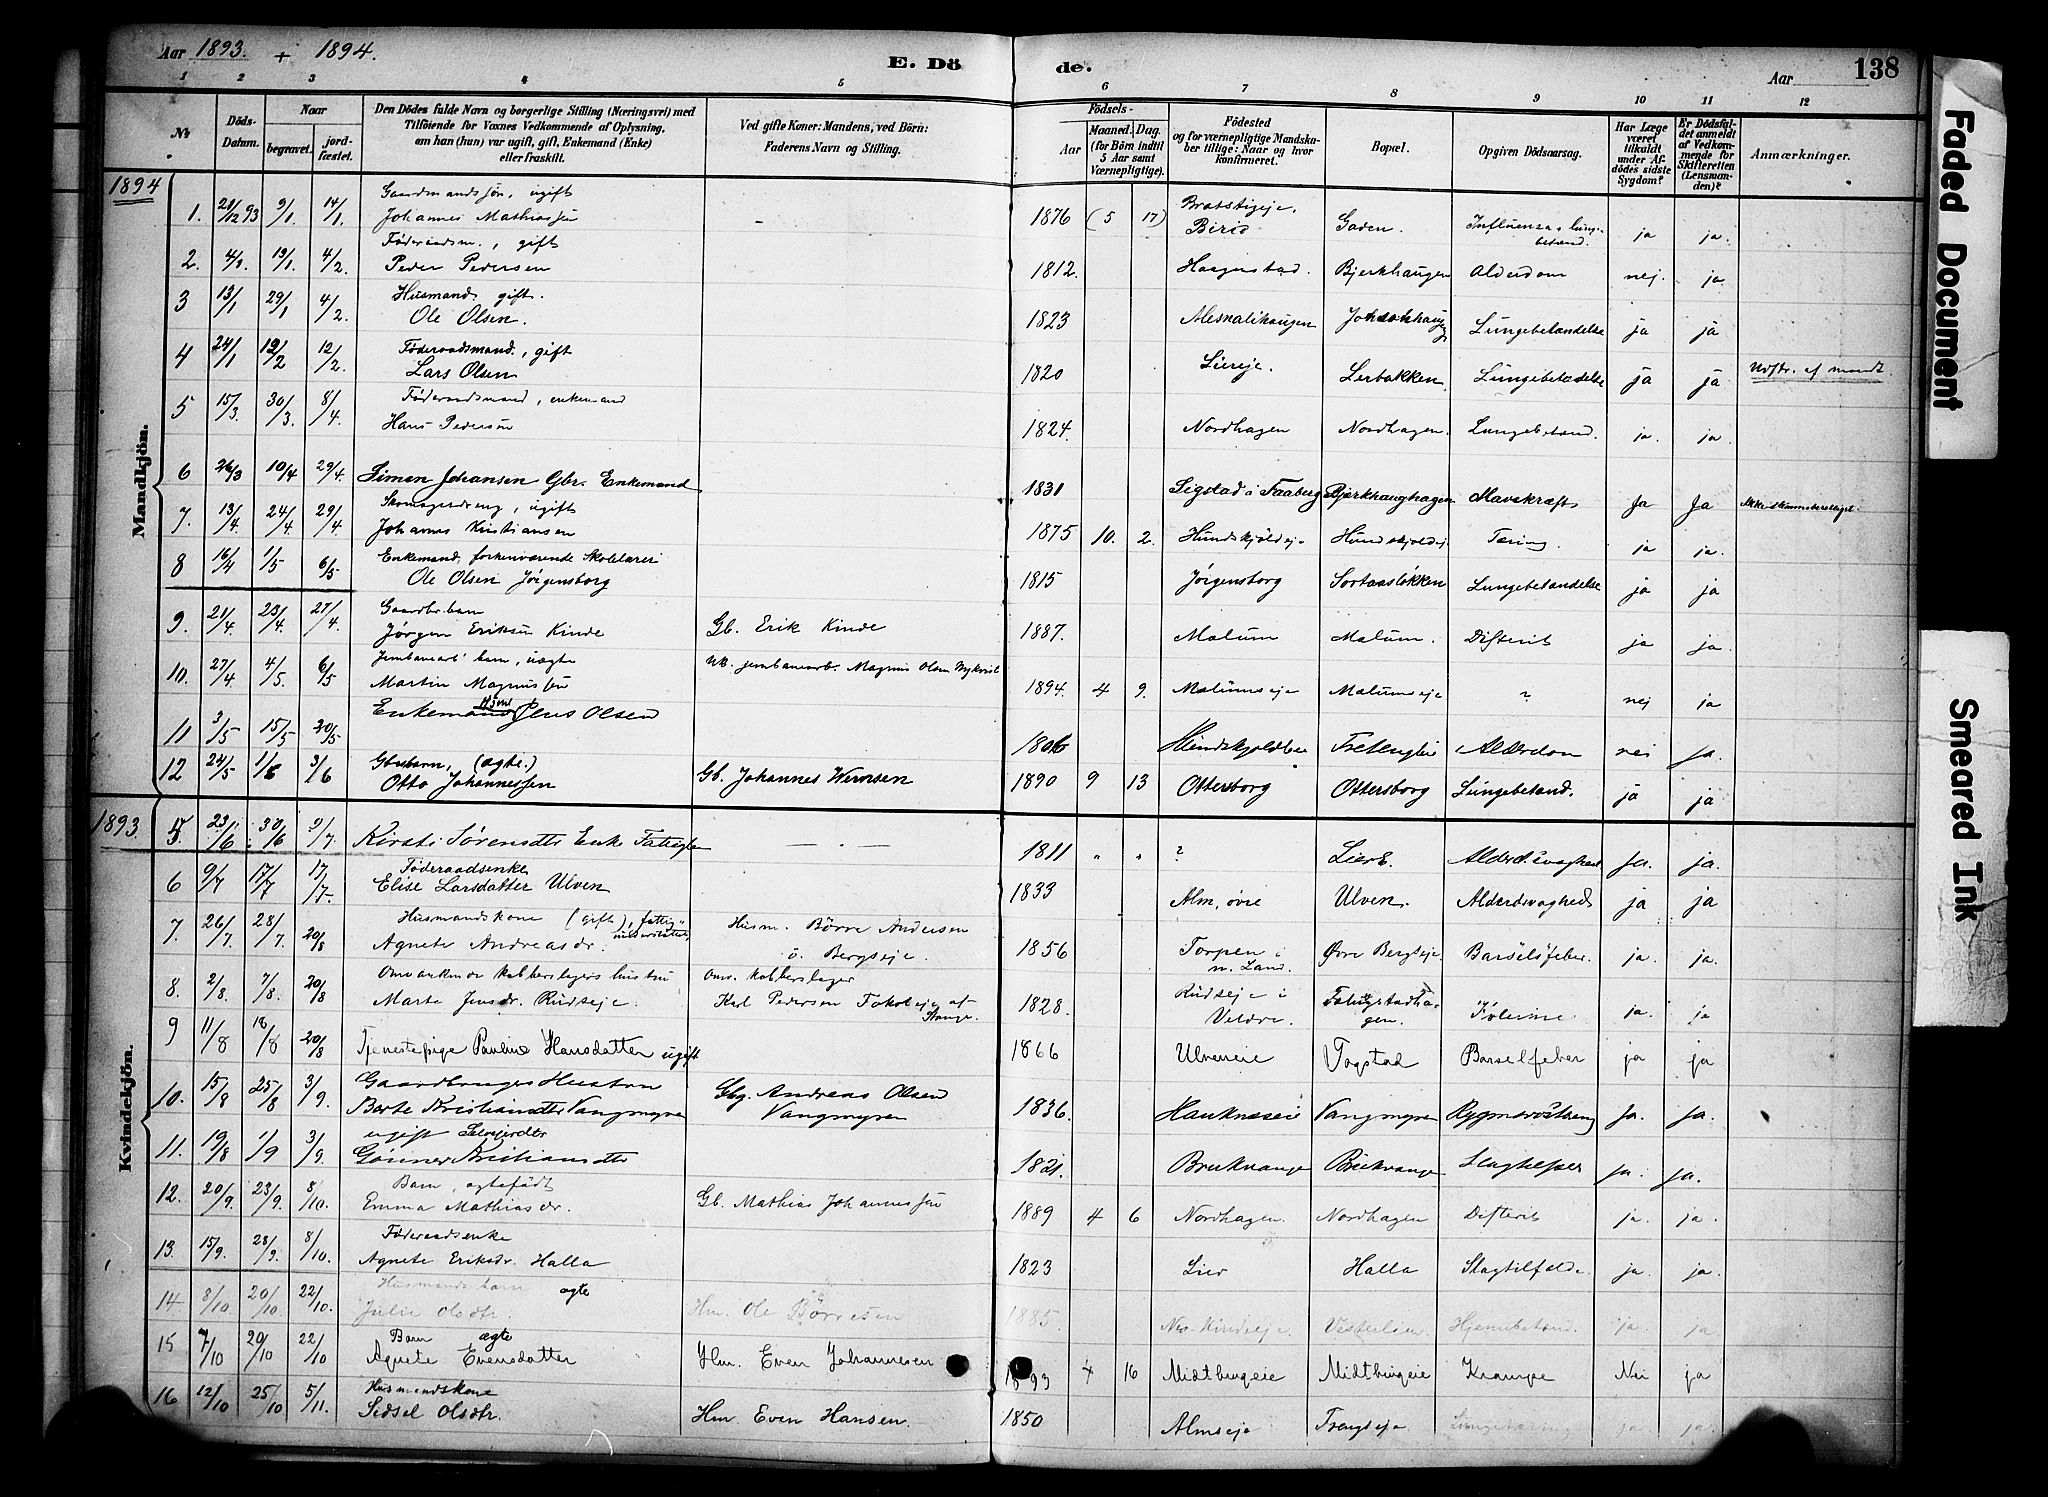 Aar 1893. + 1894.
E. Dö de.
Aar 138
1 2 3 4 5 6 7 8 9 10 11 12
№
Döds-Datum.
Naar
begravet. jordfæstet.
Den Dödes fulde Navn og borgerlige Stilling (Næringsvei) med
Tilföiende for Voxnes Vedkommende af Oplysning,
om han (hun) var ugift, gift, Enkemand (Enke)
eller fraskilt.
Ved gifte Koner: Mandens, ved Börn:
Faderens Navn og Stilling.
Födsels-
Aar
Maaned. Dag.
(for Börn indtil
5 Aar samt
Værnepligtige).
Födested
og for værnepligtige Mandskaber tillige: Naar og hvor
konfirmeret.
Bopæl.
Opgiven Dödsaarsag.
Har Læge
været
tilkaldt
under Afdödes sidste
Sygdom?
Er Dödsfaldet anmeldt
af Vedkommende for
Skifteretten
(Lensmanden)?
Anmærkninger.
1894
Mandkjön.
Gaardmandssön, ugift
1. 21/12 93 9/1 14/1. Johannes Mathiassen 1876 (5 17) Birid Gaden. Influenza ja ja.
Föderaadsm., gift
2. 4/1. 19/1. 4/2. Peder Pedersen 1812. Haagenstad. Bjerkhaugen Alderdom nej. ja
Husmand gift.
3 13/1 29/1 4/2. Ole Olsen. 1823 Lungebetændelse ja ja
Föderaadsmand, gift
4 24/1 12/2 12/2. Lars Olsen 1820 Liereje. Lerbakken Lungebetædelse ja ja
Föderaadsmand, enkemand
5 15/3. 30/3. 8/4 Hans Pedersen 1824. Nordhagen Nordhagen. Lungebetænd. ja. ja
6 26/3 10/4 29/4. Simen Johansen Gbr. Enkemand 1831 Sigstad i Faaberg Bjerkhaughagen Mavekræft Ja Ja
ugift
7. 13/4 24/4 29/4 Johannes Kristiansen 1875 10. 2. Tæring ja ja.
Enkemand, forhenværende Skolelærer
8 16/4 1/5 6/5 Ole Olsen Jörgensborg 1815 Jörgensborg Sortaaslökken Lungebetændelse ja ja
Gaardbr. barn
9. 21/4. 23/4. 27/4 Jörgen Eriksen Kinde Gb. Erik Kinde 1887. Malum Malum. Difterit ja ja.
Jernbanearb. barn, uægte
10. 27/4 4/5. 6/5 Martin Magnussen Uk. jernbanearb. Magnus Olsen 1894. 4 9. Malumseje Malumseje ? nej ja
11 3/5 15/5 20/5 Enkemand Jens Olsen Alderdom nei ja.
Gbrbarn, (ægte.)
12 24/5 3/6 Otto Johannessen Gb. Johannes Wernsen 1890 9 13 Ottersborg Ottersborg Lungebetænd. ja ja
1893.
Kvindekjön.
5 23/6 30/6 9/7. Kirsti Sörensdtr Enke 1811 " " ? Alderdsvaghed Ja. ja.
Föderaadsenke
6 9/7 17/7 17/7- Elise Larsdatter Ulven 1833 Alm, övre Ulven. Alderdsvaghed ja ja
Husmandskone (gift), fattig-
7. 26/7. 28/7. 20/8 Agnete Andreasdr. Husm. Börre Andersen
ö. Bergseje. 1856 Torpen i
n. Land. Övre Bergseje. Barselsfeber ja. ja.
Omvankende kobberslagers hustru Omv. kobberslager
8. 2/8. 7/8. 20/8 Marte Jensdr. Rudseje. Karl Pedersen af
Stange. 1828. Rudseje i
Veldre. ja. ja
9 11/8 18/8 20/8 Tjenestepige Pauline Hansdatter ugift 1866 Ulveneie Togstad Barselfeber ja ja
Gaardbrugers Hustru
10. 15/8 25/8 3/9. Berte Kristiansdtr Vangmyren Gbg. Andreas Olsen
Vangmyren 1836. Vangmyren Ja. ja.
ugift
11. 19/8 1/9 3/9. Kristiansdtr 1821. ja. ja.
Barn, ægtefödt
12. 20/9. 23/9. 8/10. Emma Mathiasdr. Gb. Mathias Johannessen 1889 4 6 Nordhagen. Nordhagen Difterit ja. ja.
Föderaadsenke
13. 15/9. 28/9. 8/10. Agnete Eriksdr. Halla 1823 Lier Halla Slagtilfælde. ja. ja.
Husmands barn ægte
14 8/10. 20/10. 22/10. Julie Olsdtr. Hm. Ole Börresen 1885. Hjernebetænd. ja ja
Barn ægte
15 7/10 20/10 22/10 Agnete Evensdatter Hm. Even Johannesen 1893 4 16 Midtbugeie Midtbugeie Krampe Nei ja
Husmandskone
16 12/10 25/10 5/11. Sidsel Olsdtr. Hm. Even Hansen. 1850 Almseje ja ja.
Faded Document
Smeared Ink